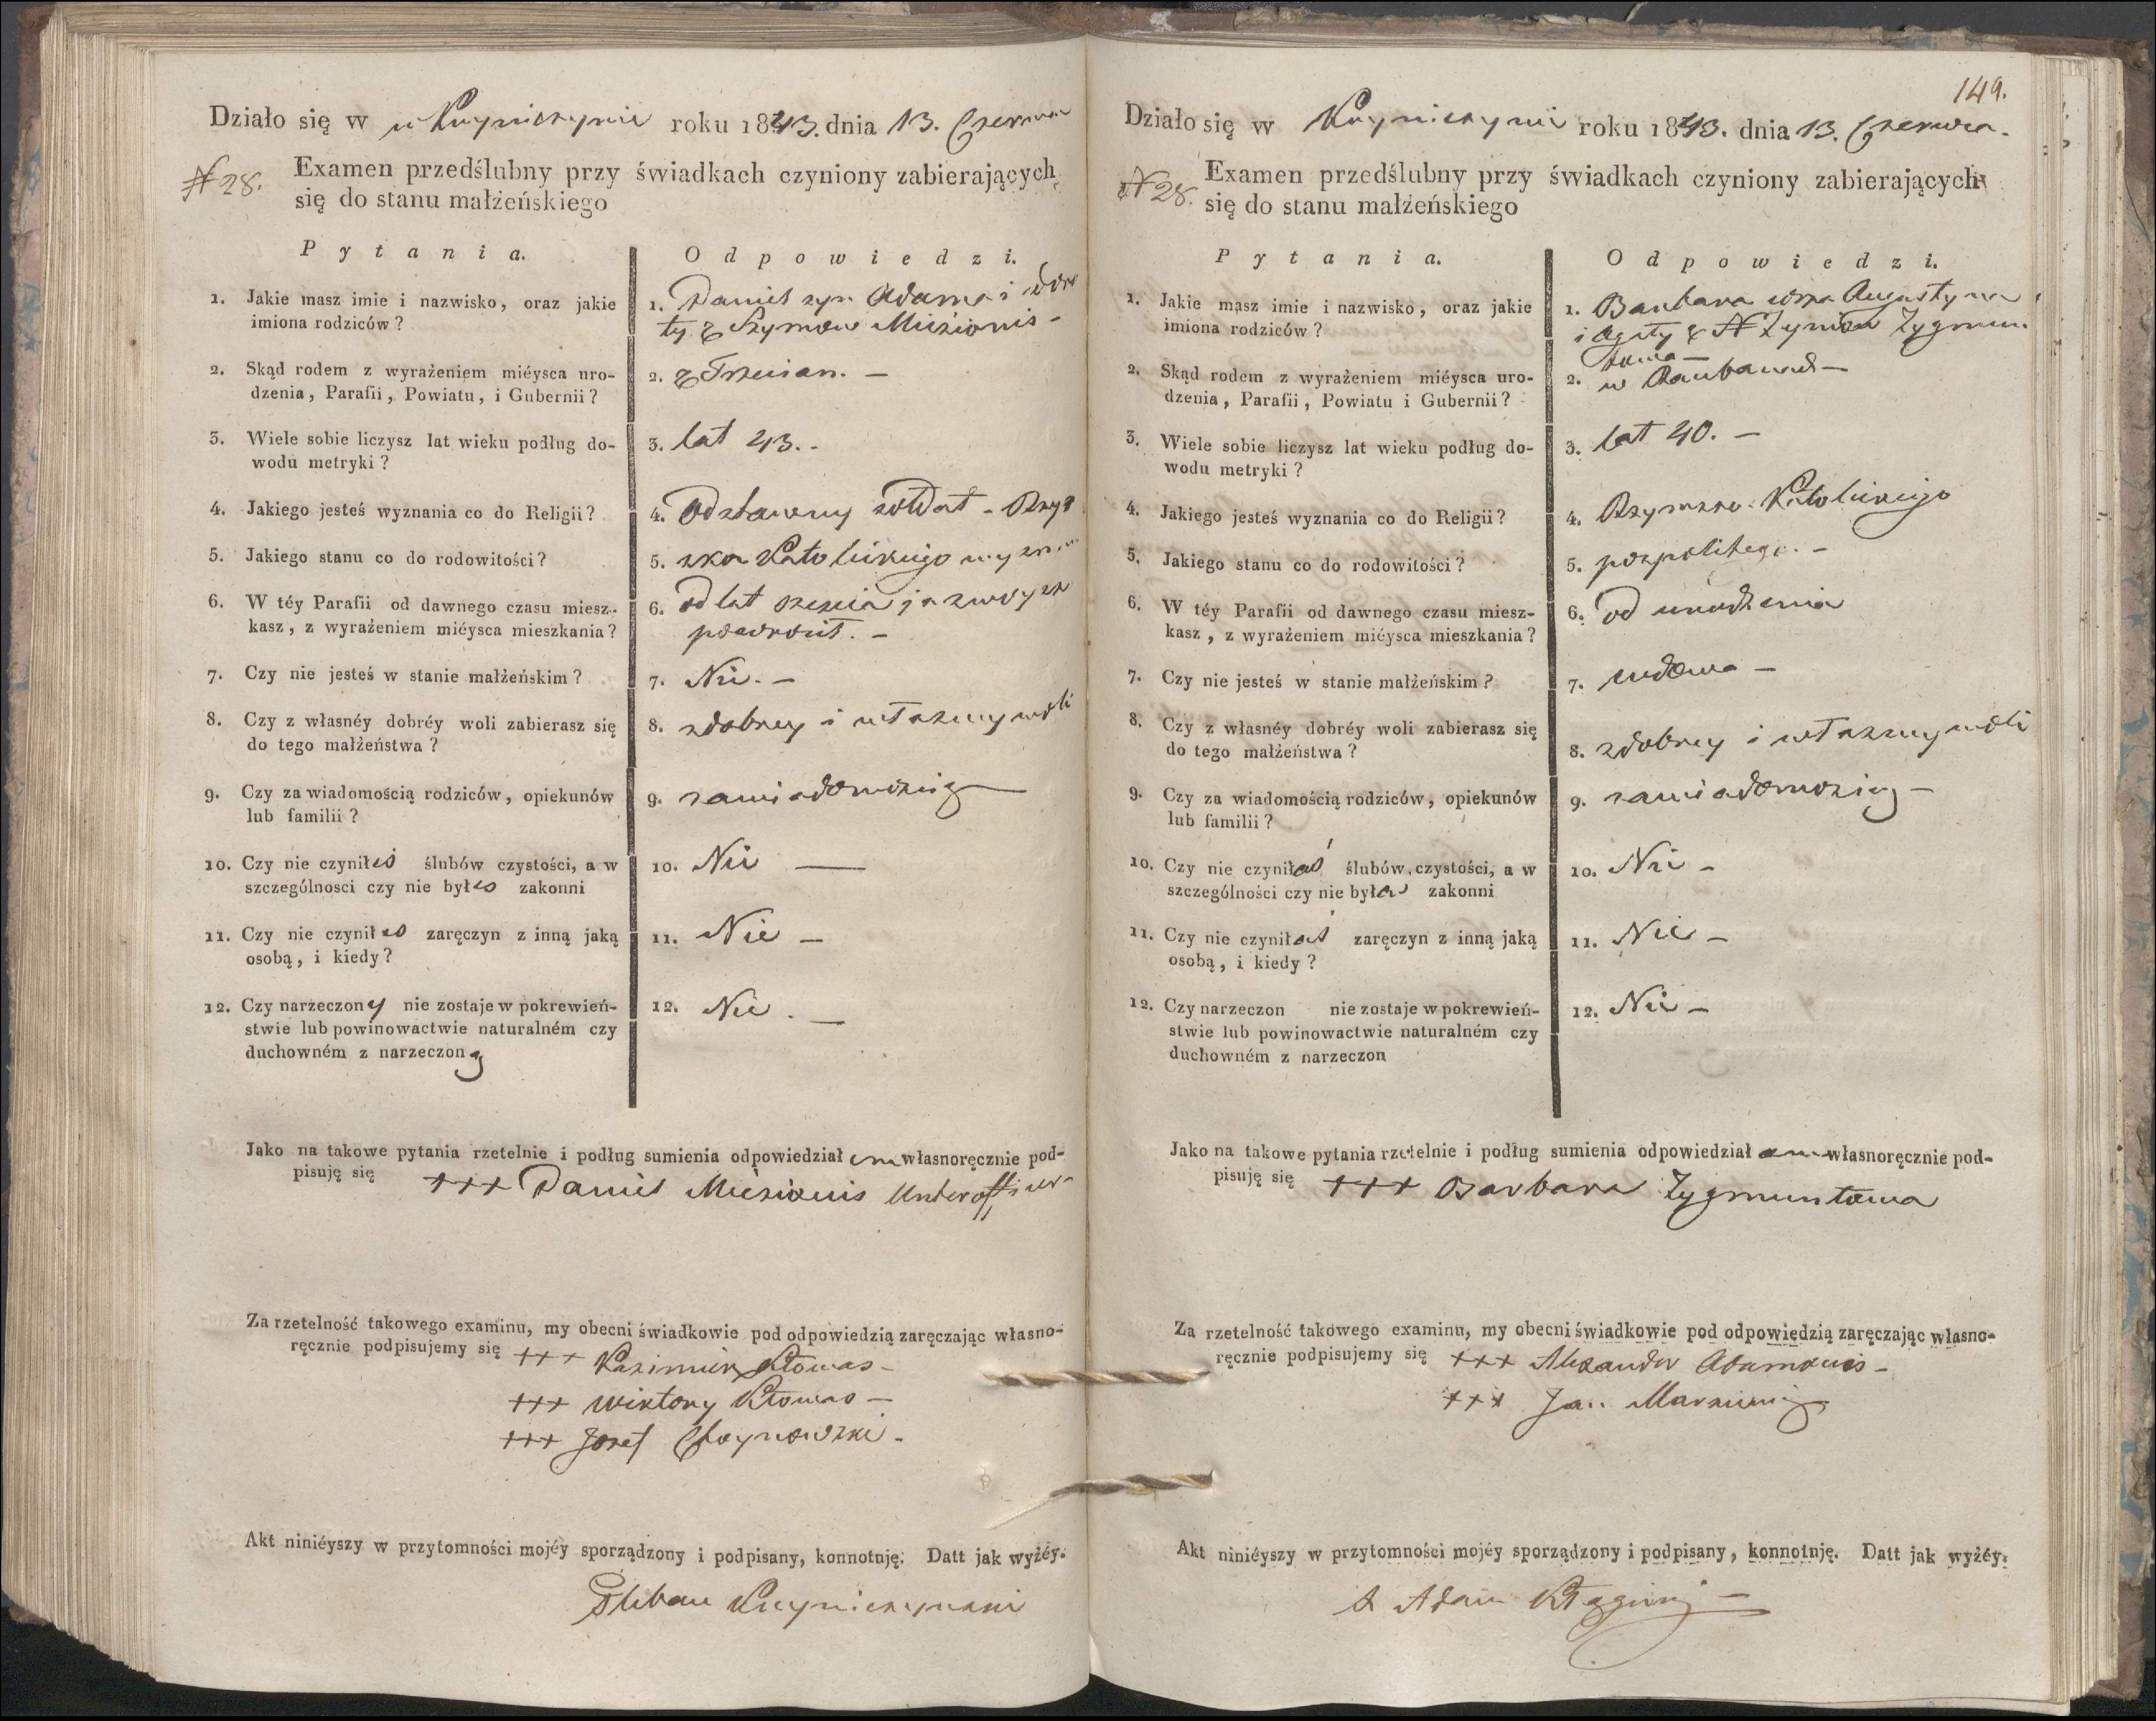 Działo się w Krynicynie roku 1843. dnia 13. Czerwca
N 28. Examen przedślubny przy świadkach czyniony zabierających
się do stanu małżeńskiego
Pytania. Odpowiedzi.
1. Jakie masz imie i nazwisko, oraz jakie
imiona rodziców?
1. Daniel syn Adama i
ty z Szymow
2. Skąd rodem z wyrażeniem miéysca uro-
dzenia, Parafii, Powiatu, i Gubernii?
2. z Trzcian. —
3. Wiele sobie liczysz lat wieku podług do-
wodu metryki?
3. lat 43. -
4. Jakiego jesteś wyznania co do Religii?
4. Odstawny sołdat - Rzym
5. Jakiego stanu co do rodowitości?
5. sko Katolickiego wyzn
6. W téy Parafii od dawnego czasu miesz-
kasz, z wyrażeniem miéysca mieszkania?
6. od lat
powrócił. —
7. Czy nie jesteś w stanie małżeńskim?
7. Nie. —
8. Czy z własnéy dobréy woli zabierasz się
do tego małżeństwa?
8. zdobrey i własney woli
9. Czy za wiadomością rodziców, opiekunów
lub familii?
9. zawiadomością —
10. Czy nie czyniłeś ślubów czystości, a w
szczególnosci czy nie byłeś zakonni
10. Nie —
11. Czy nie czyniłeś zaręczyn z inną jaką
osobą, i kiedy?
11. Nie —
12. Czy narzeczony nie zostaje w pokrewień-
stwie lub powinowactwie naturalném czy
duchowném z narzeczoną
12. Nie. —
Jako na takowe pytania rzetelnie i podług sumienia odpowiedziałem własnoręcznie pod-
pisuję się +++ Daniel Unterofficer
Za rzetelność takowego examinu, my obecni świadkowie pod odpowiedzią zaręczając własno-
ręcznie podpisujemy się +++ Kazimierz Kłowas —
+++ Wiktory Kłowas —
+++ Jozef Choynowski -
Akt niniéyszy w przytomności mojéy sporządzony i podpisany, konnotuję. Datt jak wyżéy.
Pleban
149.
Działo się w Krynicynie roku 1843. dnia 13. Czerwca.
N 28. Examen przedślubny przy świadkach czyniony zabierających
się do stanu małżeńskiego
Pytania. Odpowiedzi.
1. Jakie masz imie i nazwisko, oraz jakie
imiona rodziców?
1. Barbara córka Augustyna
i Agaty z Zygmun
towa —
2. Skąd rodem z wyrażeniem miéysca uro-
dzenia, Parafii, Powiatu i Gubernii?
2. w
3. Wiele sobie liczysz lat wieku podług do-
wodu metryki?
3. lat 40. —
4. Jakiego jesteś wyznania co do Religii?
4. Rzymsko Katolickiego
5. Jakiego stanu co do rodowitości?
5. pospolitego. —
6. W téy Parafii od dawnego czasu miesz-
kasz, z wyrażeniem miéysca mieszkania?
6. od urodzenia
7. Czy nie jesteś w stanie małżeńskim?
7. wdowa —
8. Czy z własnéy dobréy woli zabierasz się
do tego małżeństwa?
8. zdobrey i własney woli
9. Czy za wiadomością rodziców, opiekunów
lub familii?
9. zawiadomością —
10. Czy nie czyniłaś ślubów czystości, a w
szczególności czy nie byłaś zakonni
10. Nie —
11. Czy nie czyniłaś zaręczyn z inną jaką
osobą, i kiedy?
11. Nie —
12. Czy narzeczon nie zostaje w pokrewień-
stwie lub powinowactwie naturalném czy
duchowném z narzeczon
12. Nie —
Jako na takowe pytania rzetelnie i podług sumienia odpowiedziałam własnoręcznie pod-
pisuję się +++ Barbara Zygmuntowa
Za rzetelność takowego examinu, my obecni świadkowie pod odpowiedzią zaręczając własno-
ręcznie podpisujemy się +++ Alexander Adamowis —
+++ Jan
Akt niniéyszy w przytomności mojéy sporządzony i podpisany, konnotuję. Datt jak wyżéy.
X Adam